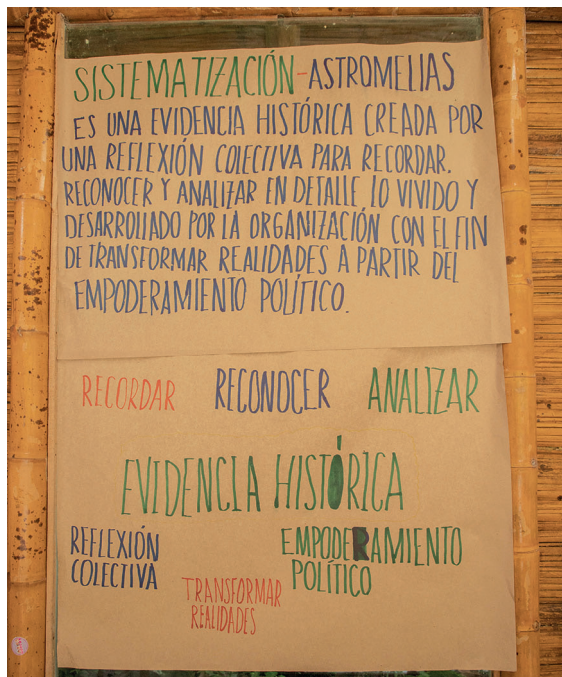 SISTEMATIZACIÓN-ASTROMELIAS
ES UNA EVIDENCIA HISTÓRICA CREADA POR
UNA REFLEXIÓN COLECTIVA PARA RECORDAR.
RECONOCER Y ANALIZAR EN DETALLE, LO VIVIDO Y
DESARROLLADO POR LA ORGANIZACIÓN CON EL FIN
DE TRANSFORMAR REALIDADES A PARTIR DEL
EMPODERAMIENTO POLÍTICO.
RECORDAR RECONOCER ANALIZAR
EVIDENCIA HISTÓRICA
REFLEXIÓN
COLECTIVA
EMPODERAMIENTO
POLÍTICO
TRANSFORMAR
REALIDADES